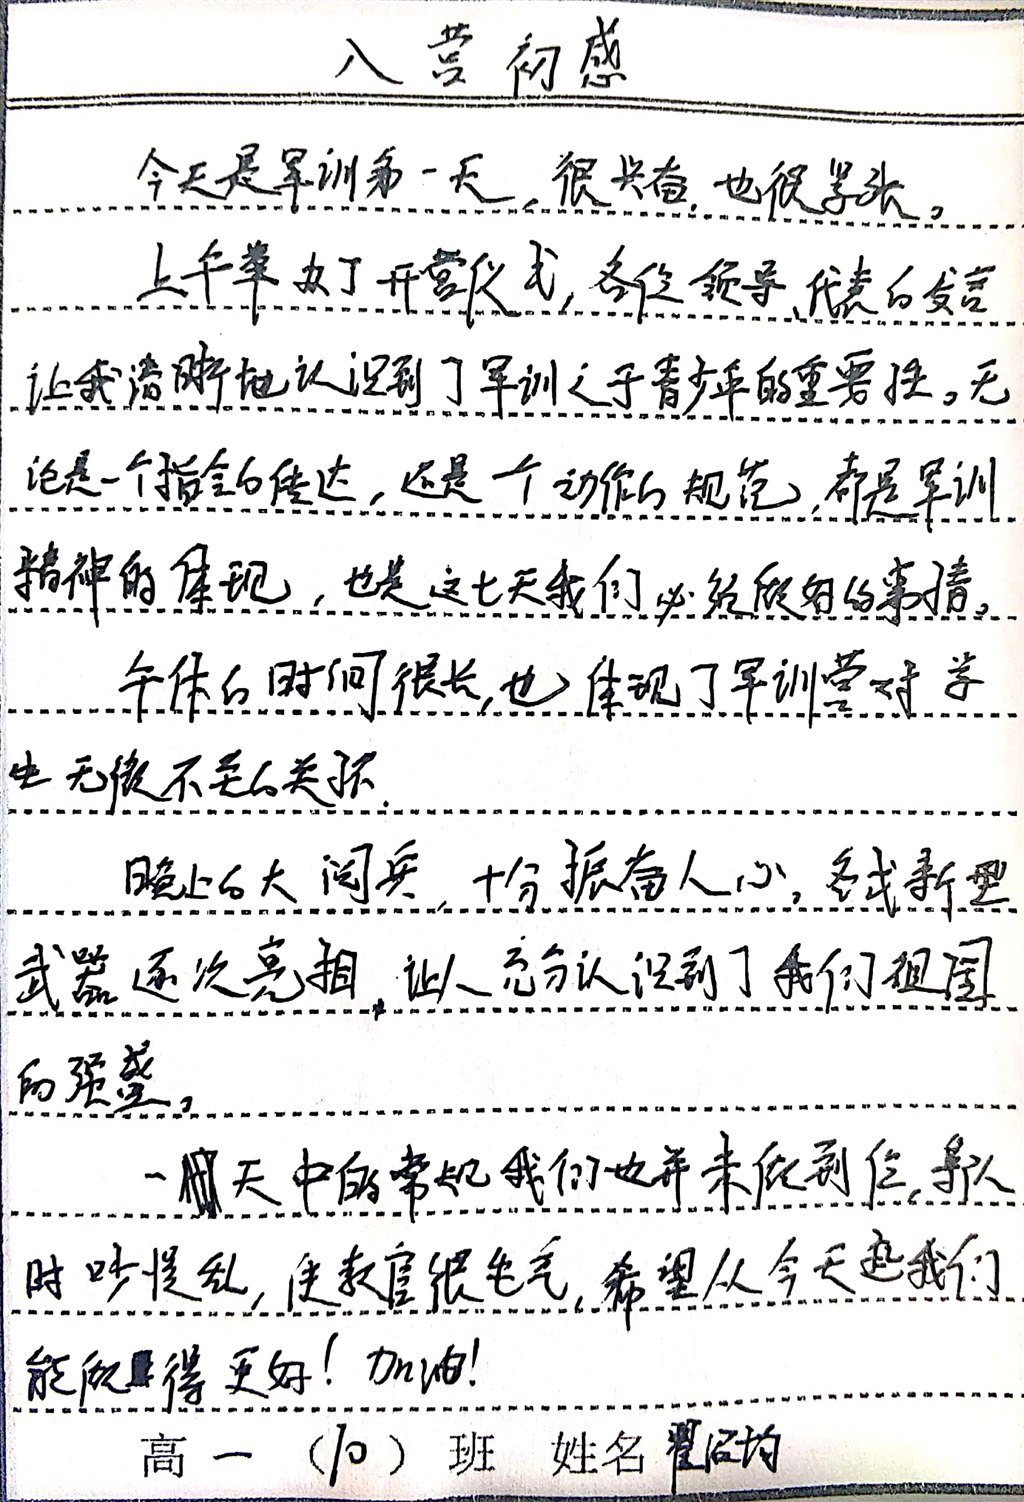 入营初感
今天是军训第一天，很兴奋，也很辛苦。
上午举办了开营仪式，各位领导、代表的发言
让我清晰地认识到了军训之于青少年的重要性。无
论是一个指令的传达，还是一个动作的规范，都是军训
精神的体现，也是这七天我们必须做好的事情。
午休的时间很长，也体现了军训营对学
生无微不至的关怀。
晚上的大阅兵，十分振奋人心。各式新型
武器逐次亮相，让人充分认识到了我们祖国
的强盛。
一天中的常规我们也并未做到位，导队
时吵慌乱，使教官很生气，希望从今天起我们
能做得更好！加油！
高一（10）班 姓名